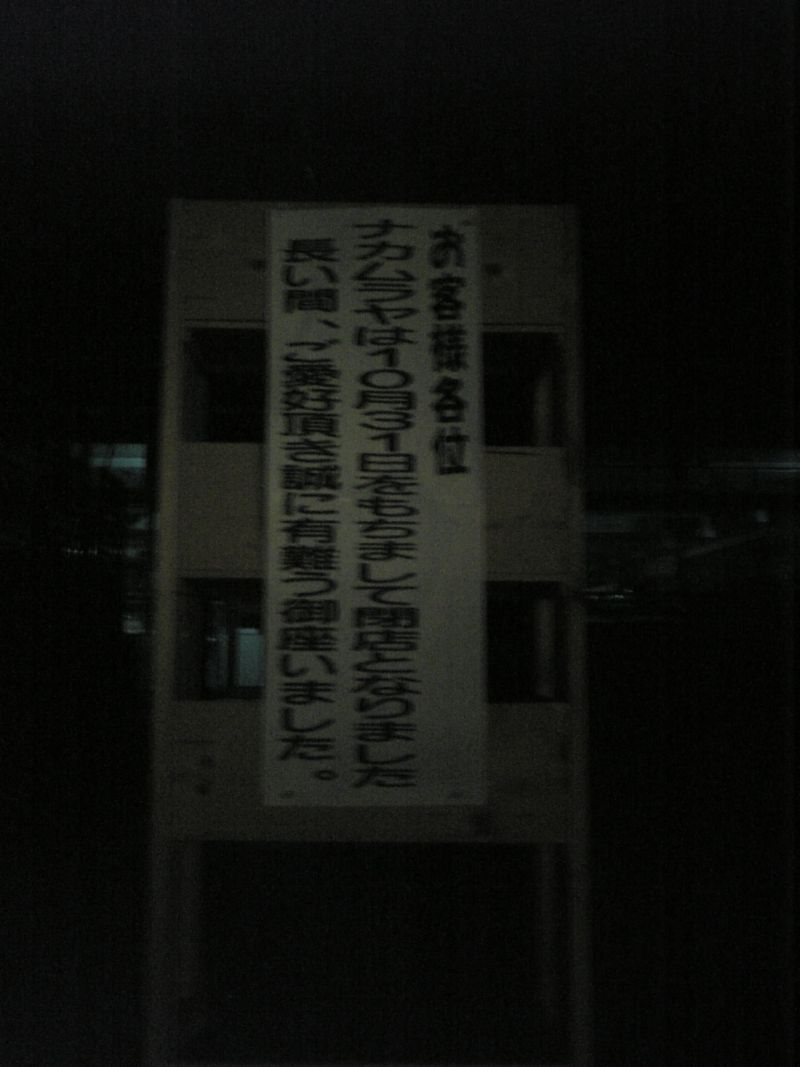 お客様各位
ナカムラヤは10月31日をもちまして閉店となりました
長い間、ご愛好頂き誠に有難う御座いました。